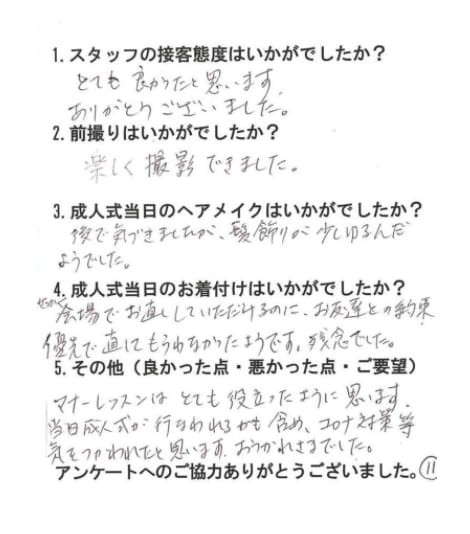 1. スタッフの接客態度はいかがでしたか？
とても良かったと思います
ありがとうございました。
2. 前撮りはいかがでしたか？
楽しく撮影できました。
3. 成人式当日のヘアメイクはいかがでしたか？
後で気づきましたが、髪飾りが少しゆるんだ
ようでした。
4. 成人式当日のお着付けはいかがでしたか？
せっかく会場でお直ししていただけるのに、お友達との約束
優先で直してもらわなかったようです。残念でした。
5. その他（良かった点・悪かった点・ご要望）
マナーレッスンはとても役立ったように思います。
当日成人式が行なわれるかも含め、コロナ対策等
気をつかわれたと思います。おつかれさまでした。
アンケートへのご協力ありがとうございました。⑪